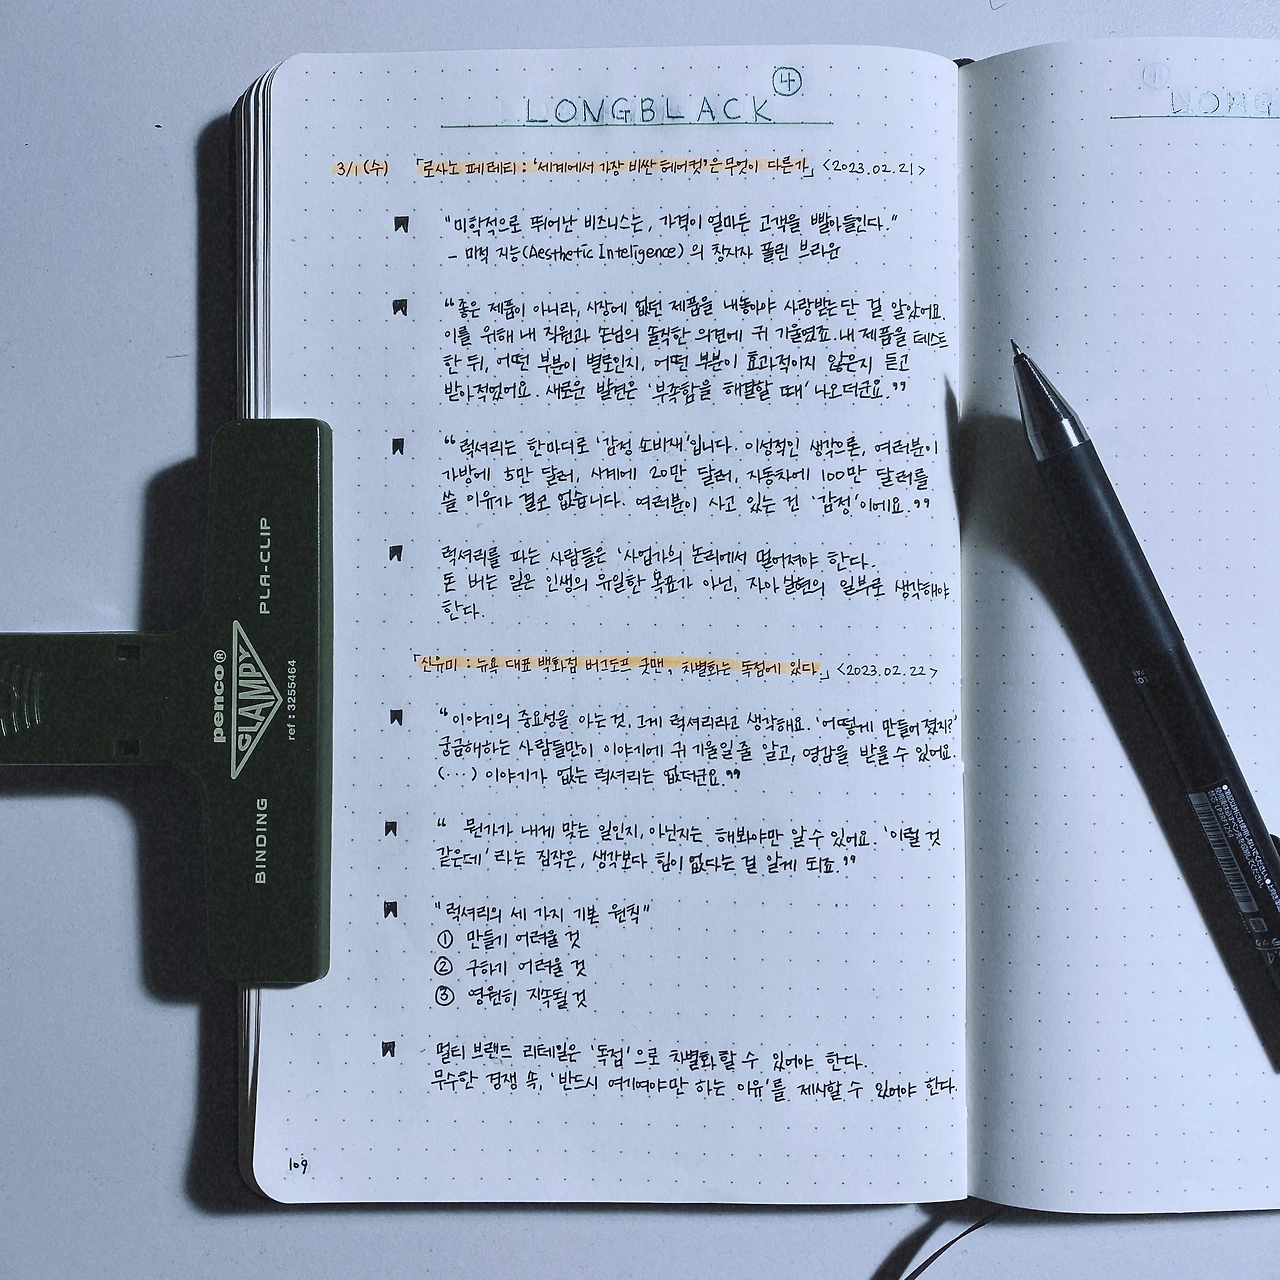 ④
LONGBLACK
3/1 (수) 「로사노 페레티 : '세계에서 가장 비싼 헤어컷'은 무엇이 다른가」 <2023.02.21>
"미학적으로 뛰어난 비즈니스는, 가격이 얼마든 고객을 빨아들인다."
- 미적 지능(Aesthetic Inteligence)의 창시자 폴린 브라운
"좋은 제품이 아니라, 시장에 없던 제품을 내놓아야 사랑받는단 걸 알았어요.
이를 위해 내 직원과 손님의 솔직한 의견에 귀 기울였죠. 내 제품을 테스트
한 뒤, 어떤 부분이 별로인지, 어떤 부분이 효과적이지 않은지 듣고
받아적었어요. 새로운 발견은 '부족함을 해결할 때' 나오더군요."
"럭셔리는 한마디로 '감정 소비재'입니다. 이성적인 생각으론, 여러분이
가방에 5만 달러, 시계에 20만 달러, 자동차에 100만 달러를
쓸 이유가 결코 없습니다. 여러분이 사고 있는 건 '감정'이에요."
럭셔리를 파는 사람들은 '사업가의 논리에서 멀어져야 한다.
돈 버는 일은 인생의 유일한 목표가 아닌, 자아 실현의 일부로 생각해야
한다.
「신유미 : 뉴욕 대표 백화점 버그도프 굿맨, 차별화는 독점에 있다.」 <2023.02.22>
"이야기의 중요성을 아는 것. 그게 럭셔리라고 생각해요. '어떻게 만들어졌지?'
궁금해하는 사람들만이 이야기에 귀 기울일 줄 알고, 영감을 받을 수 있어요.
(···) 이야기가 없는 럭셔리는 없더군요."
" 뭔가가 내게 맞는 일인지, 아닌지는 해봐야만 알 수 있어요. '이럴 것
같은데' 라는 짐작은, 생각보다 힘이 없다는 걸 알게 되죠."
"럭셔리의 세 가지 기본 원칙"
① 만들기 어려울 것
② 구하기 어려울 것
③ 영원히 지속될 것
멀티 브랜드 리테일은 '독점'으로 차별화 할 수 있어야 한다.
무수한 경쟁 속, '반드시 여기여야만 하는 이유'를 제시할 수 있어야 한다.
109
penco®
CLAMPY
ref : 3255464
BINDING PLA-CLIP